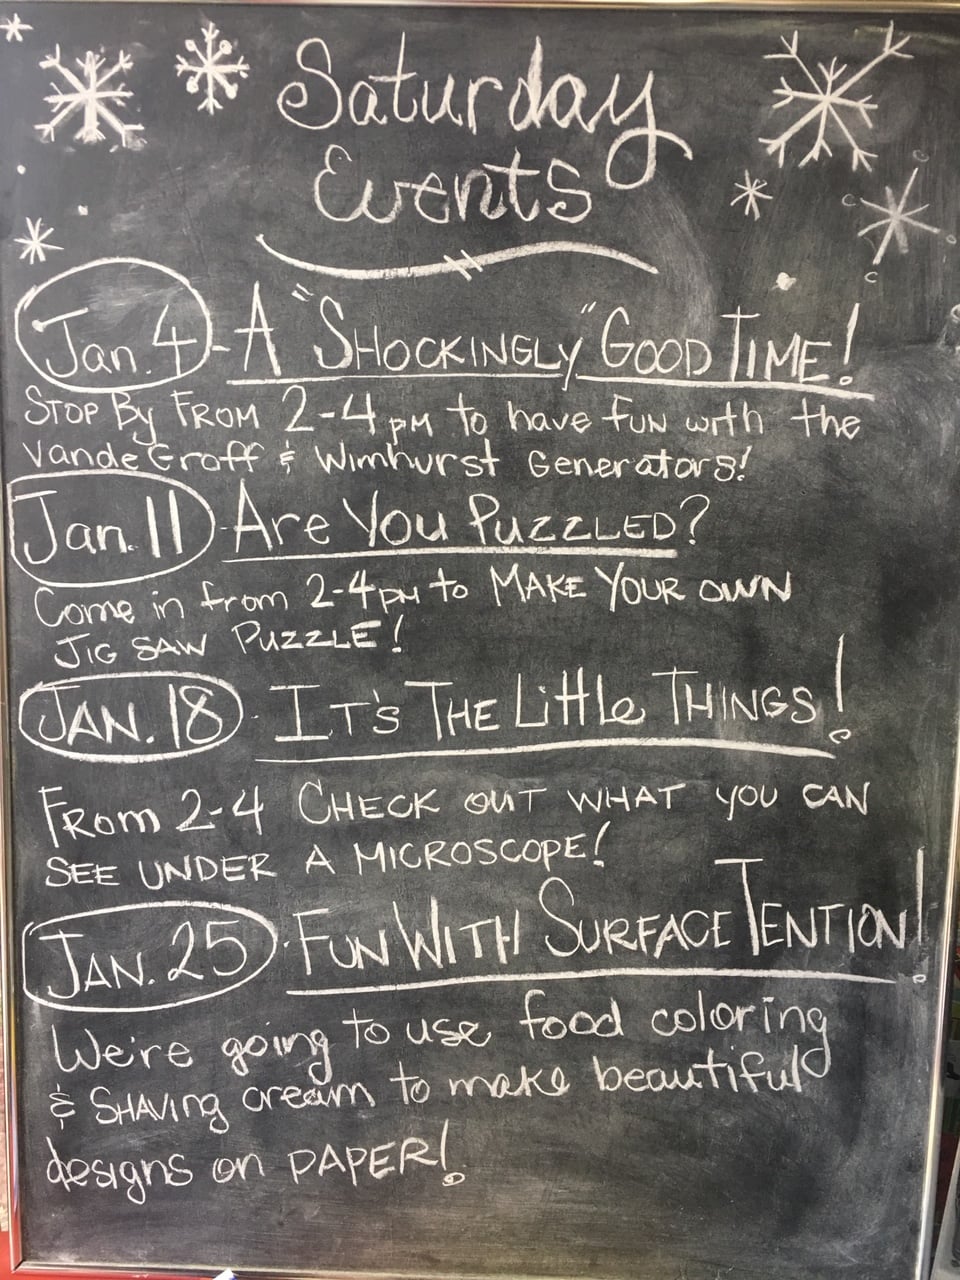 Saturday
Events
Jan. 4 - A "SHOCKINGLY" GOOD TIME!
STOP By FROM 2-4 pm to have fun with the
Vande Groff & Wimhurst Generators!
Jan. 11 - Are You PUZZLED?
Come in from 2-4pm to MAKE YOUR OWN
JIG SAW PUZZLE!
JAN. 18 - IT'S THE LittLe THINGS!
From 2-4 CHECK OUT WHAT YOU CAN
SEE UNDER A MICROSCOPE!
JAN. 25 - FUN WITH SURFACE TENTION!
We're going to use food coloring
& SHAVing cream to make beautiful
designs on PAPER!